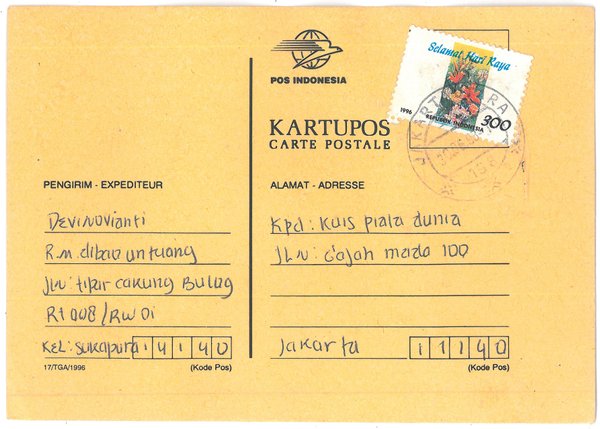 POS INDONESIA
Selamat Hari Raya
1996
REPUBLIK INDONESIA
300
KARTUPOS
CARTE POSTALE
PENGIRIM - EXPEDITEUR
DEVINOVIANTI
R.M. dibao untuang
JLN: tipar cakung Bulag
Rt 008 / RW 01
KEL: SUKAPURA 14140
17/TGA/1996
(Kode Pos)
ALAMAT - ADRESSE
Kpd: Kuis Piala dunia
JLN: Gajah mada 100
Jakarta 11140
(Kode Pos)